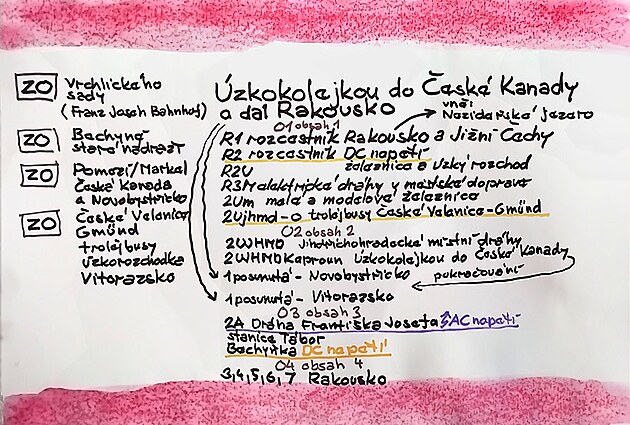 ZO Vrchlického
sady
(Franz Josef Bahnhof)
ZO Bechyně
staré nádraží
ZO Pomezí/Markal
Česká Kanada
a Novobystřicko
ZO České Velenice
Gmünd
trolejbusy
úzkorozchodka
Vitorazsko
Úzkokolejkou do České Kanady
a dál Rakousko
vně:
Nazidařské jezero
01 obsah 1
R1 rozcastník Rakousko a Jižní Čechy
R2 rozcastník DC napětí
R2U železnice a úzký rozchod
R3M elektrické dráhy v městské dopravě
2Um malá a modelová železnice
2Ujhmd-o trolejbusy České Velenice-Gmünd
02 obsah 2
2WHMD Jindřichohradecké místní dráhy
2WHMD Kaproun Úzkokolejkou do České Kanady
1 posunutá - Novobystřicko
pokračování
1 posunutá - Vitorazsko
03 obsah 3
2A Dráha Františka Josefa AC napětí
stanice Tábor
Bechyňka DC napětí
04 obsah 4
3,4,5,6,7 Rakousko